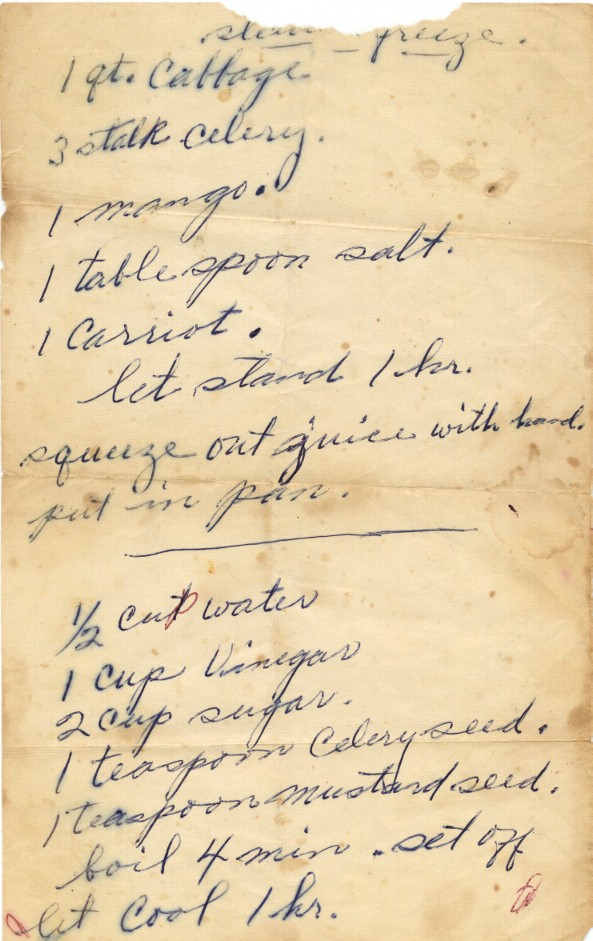 freeze.
1 qt. Cabbage
3 stalk celery.
1 mango.
1 table spoon salt.
1 Carriot.
let stand 1 hr.
squeeze out juice with hand.
put in pan.
1/2 cup water
1 cup Vinegar
2 cup sugar.
1 teaspoon Celery seed.
1 teaspoon mustard seed.
boil 4 min. set off
let cool 1 hr.